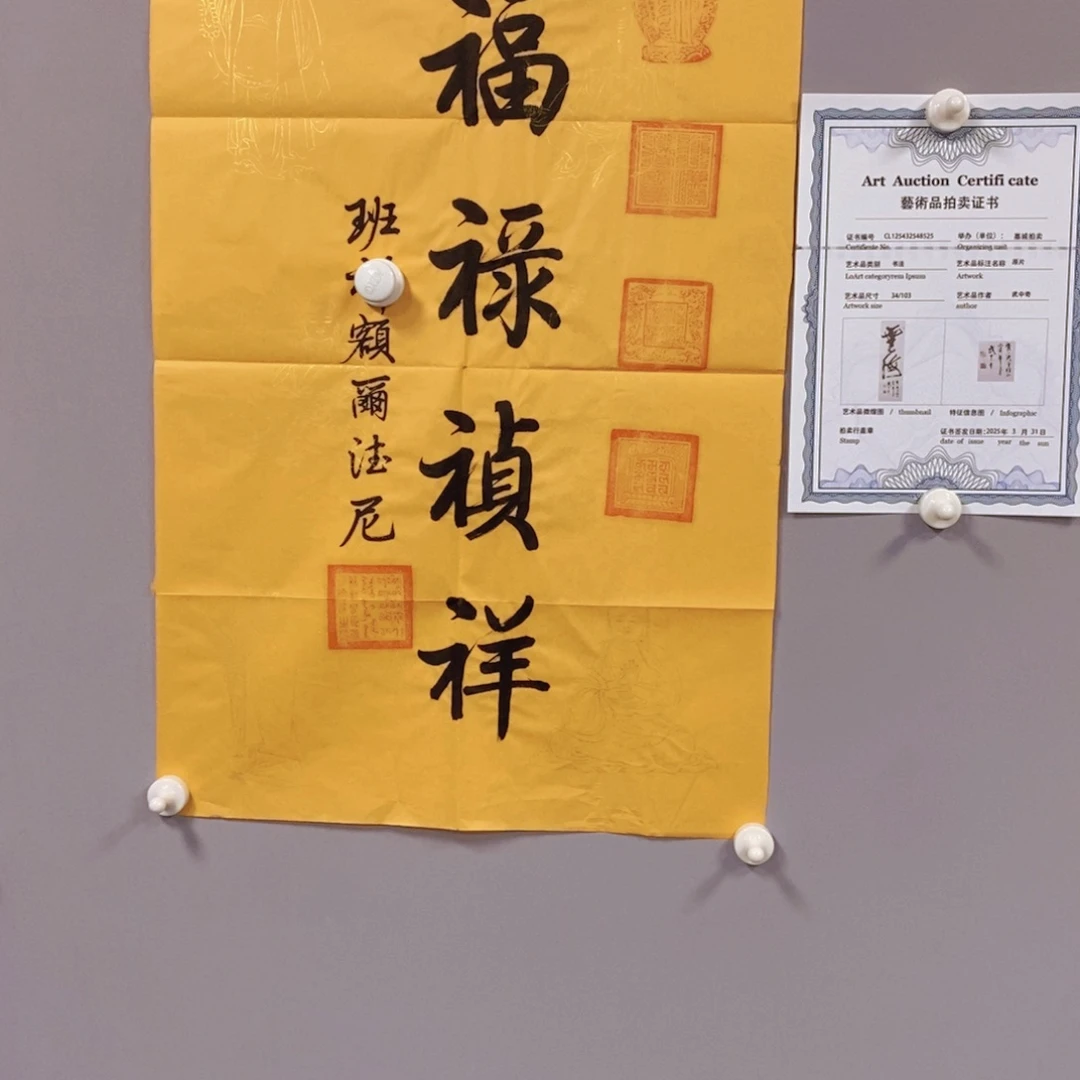 福禄禎祥
班
額爾法尼
Art Auction Certifi cate
藝術品拍卖证书
证书编号 CL125432548525 举办（单位）： 嘉诚拍卖
Certificate No. Organizing unit
艺术品类别 书法 艺术品标注名称 原片
LoArt categoryrem Ipsum Artwork
艺术品尺寸 34/103 艺术品作者 武中奇
Artwork size author
艺术品微缩图 / thumbnail 特征信息图 / Infographic
拍卖行盖章 证书签发日期：2025年 3 月 31日
Stamp date of issue year the sun